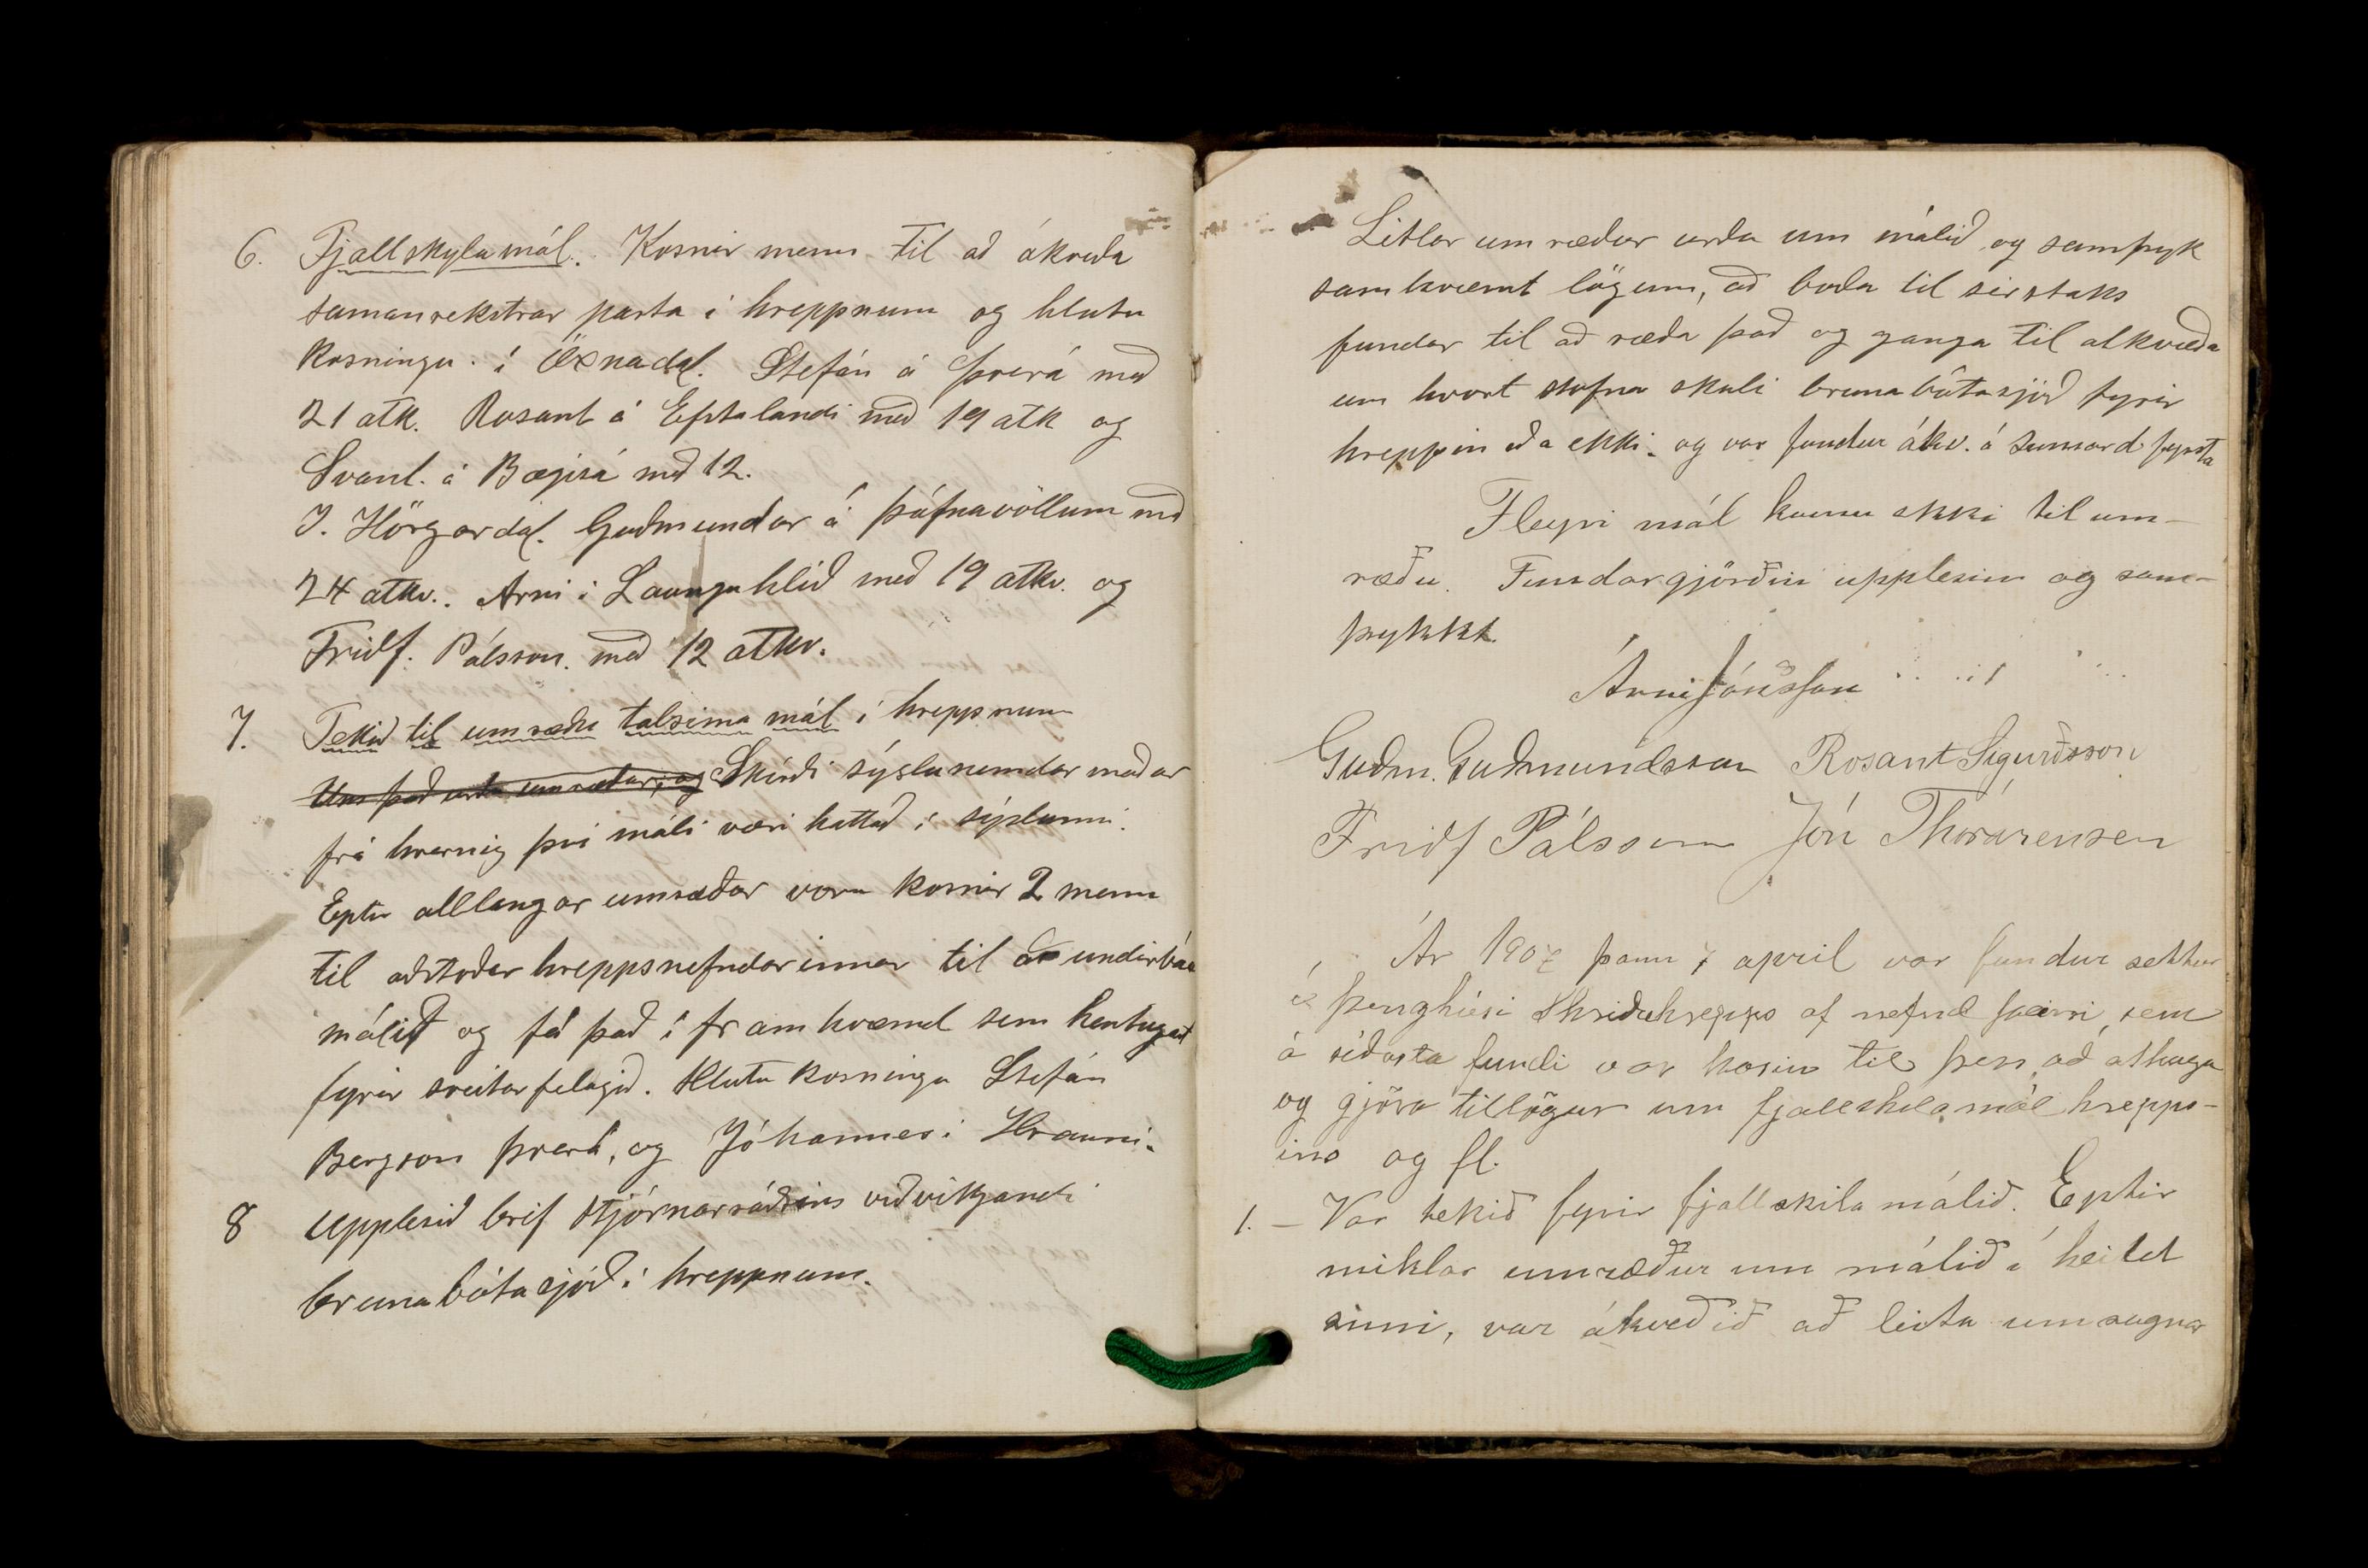 6. Fjallskylamál. Kosnir menn til að ákveða
samanrekstrar parta í hreppnum og hlutu
Kosningu. í Öxnadal. Stefán á Þverá með
21 atk. Rosant á Efstalandi með 19 atk og
Svanl. á Bægisá með 12.
I. Hörgardal. Guðmundur á Þúfnavöllum með
24 atkv. Arni í Launguhlíð með 19 atkv. og
Friðf. Pálsson. með 12 atkv.
7. Tekið til umræðu talsima mál í hreppnum
Um það urðu umræður, og Skírði sýslunemdar maður
frá hvernig því máli væri hattað í sýslunni.
Eptir alllangar umræður voru kosnir 2 menn
til aðstoðar hreppsnefndarinnar til að undirbúa
málið og fá það í framkvæmd sem hentugast
fyrir sveitarfelagið. Hlutu kosningu Stefán
Bergson Þverá, og Jóhannes í Hrauni.
8 Upplesið brif stjórnarráðsins viðvíkjandi
brunabótasjóð í hreppnum.
Litlar umræður urðu um málið og samþyk
samkvæmt lögum, að boða til sirstaks
fundar til að ræða það og ganga til atkvæða
um hvort stofna skuli brunabótasjóð fyrir
hreppin eða ekki. og var fundur ákv. á sumard. fyrsta
Fleyri mál komu ekki til um-
ræðu. Fundargjörðin upplesin og sam-
þykkt.
Árni Jónsson
Guðm. Guðmundsson Rosant Sigurðsson
Friðf Pálsson Jón Thorarensen
Ár 1907 þann 7 april var fundur settur
á þinghúsi Skriðuhrepps af nefnd þeirri, sem
á síðasta fundi var kosin til þess að athuga
og gjöra tillögur um fjallskilamál hrepps-
ins og fl.
1. - Var tekið fyrir fjallskila málið. Eptir
miklar umræður um málið í heild
sinni, var ákveðið að leita umsagnar